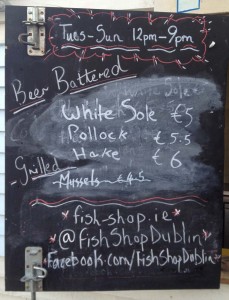 Tues-Sun 12pm-9pm
Beer Battered
White Sole €5
Pollock €5.5
Hake €6
-Grilled
Mussels €4.5
fish-shop.ie
@fishShopDublin
Facebook.com/FishShopDublin